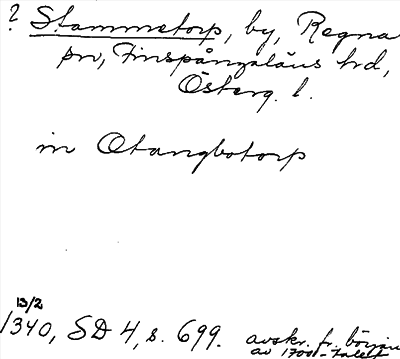 ? Stammetorp, by, Regna
sn, Finspångaläns hd,
Österg. l.
in Otangbotorp
13/2
1340, SD 4, s. 699. avskr. fr. början
av 1700-talet